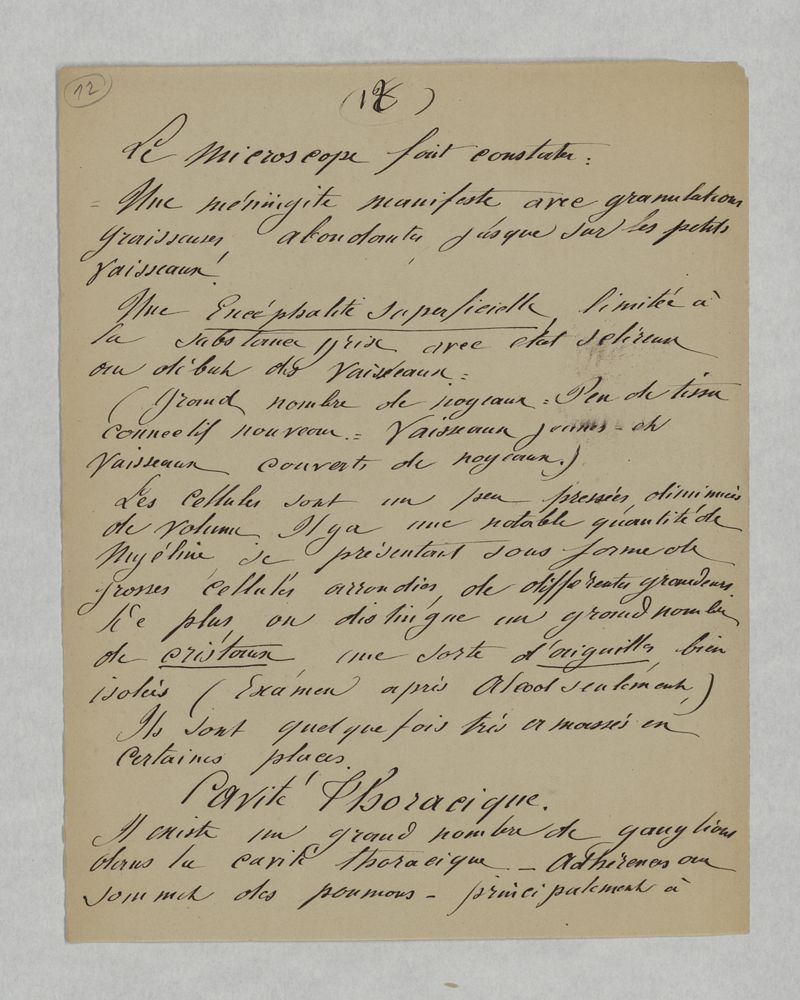 12
(18)
Le microscope fait constater :
= Une méningite manifeste avec granulations
graisseuses abondantes jusque sur les petits
vaisseaux.
Une Encéphalite superficielle, limitée à
la substance grise avec état
au début des vaisseaux =
(Grand nombre de noyeaux = Peu de tissu
connectif nouveau. = Vaisseaux jeunes - et
vaisseaux couverts de noyeaux.)
Les cellules sont un peu pressées, diminuées
de volume. Il y a une notable quantité de
Myéline se présentant sous forme de
grosses cellules arrondies, de différentes grandeurs.
De plus, on distingue un grand nombre
de cristaux une sorte d'aiguilles, bien
isolés (Examen après Alcool seulement,)
Ils sont quelquefois très ermassés en
certaines places.
Cavité Thoracique.
Il existe un grand nombre de ganglions
dans la cavité thoracique - Adhérences au
sommet des poumons - principalement à